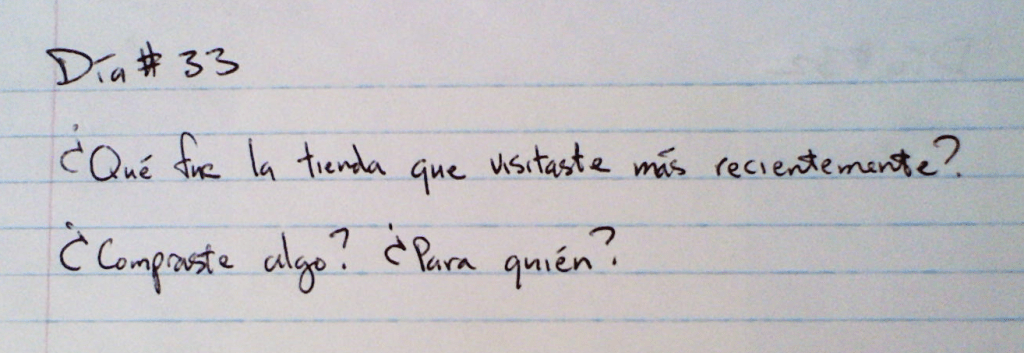 Día # 33
¿Qué fue la tienda que visitaste más recientemente?
¿Compraste algo? ¿Para quién?